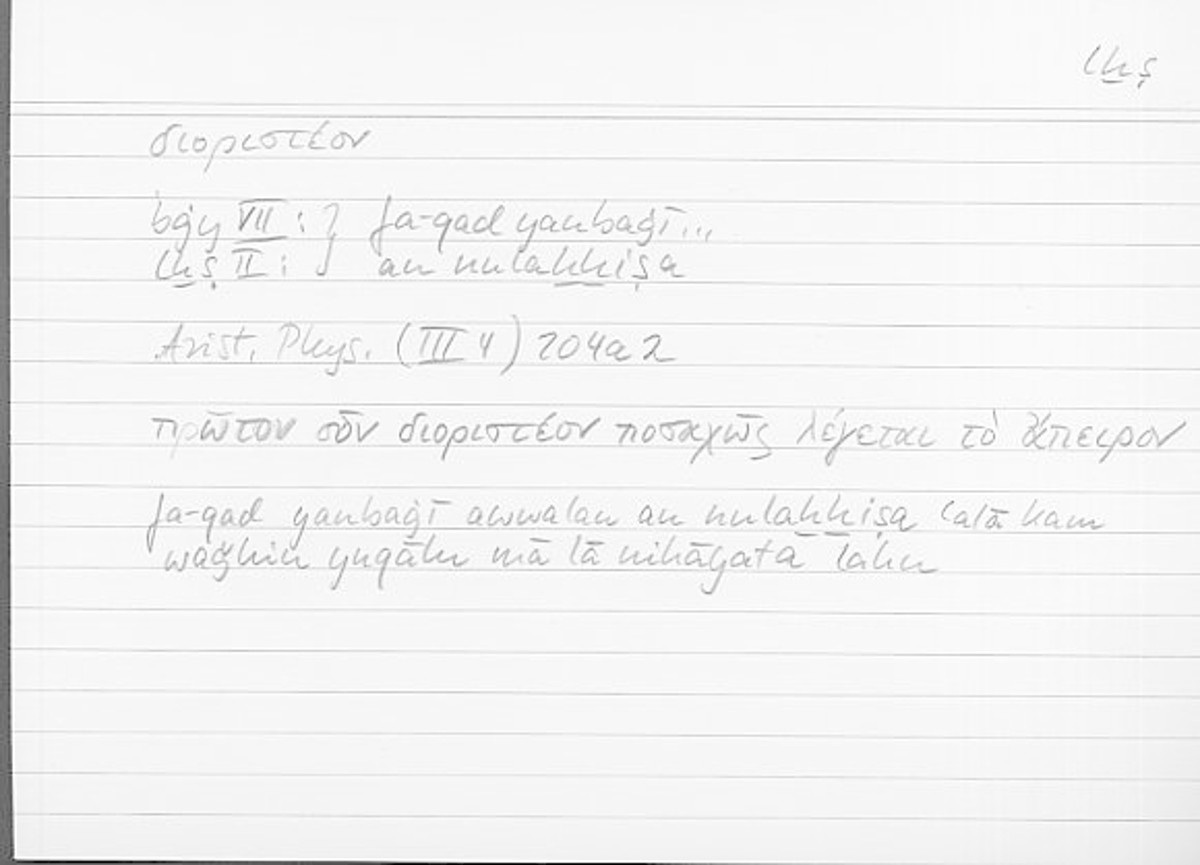 lḫṣ
διοριστέον
bġy VII : } fa-qad yanbaġī...
lḫṣ II : an nulaḫḫiṣa
Arist. Phys. (III 4) 204a2
πρῶτον οὖν διοριστέον ποσαχῶς λέγεται τὸ ἄπειρον
fa-qad yanbaġī awwalan an nulaḫḫiṣa ʿalā kam
waǧhin yuqālu mā lā nihāyata lahū